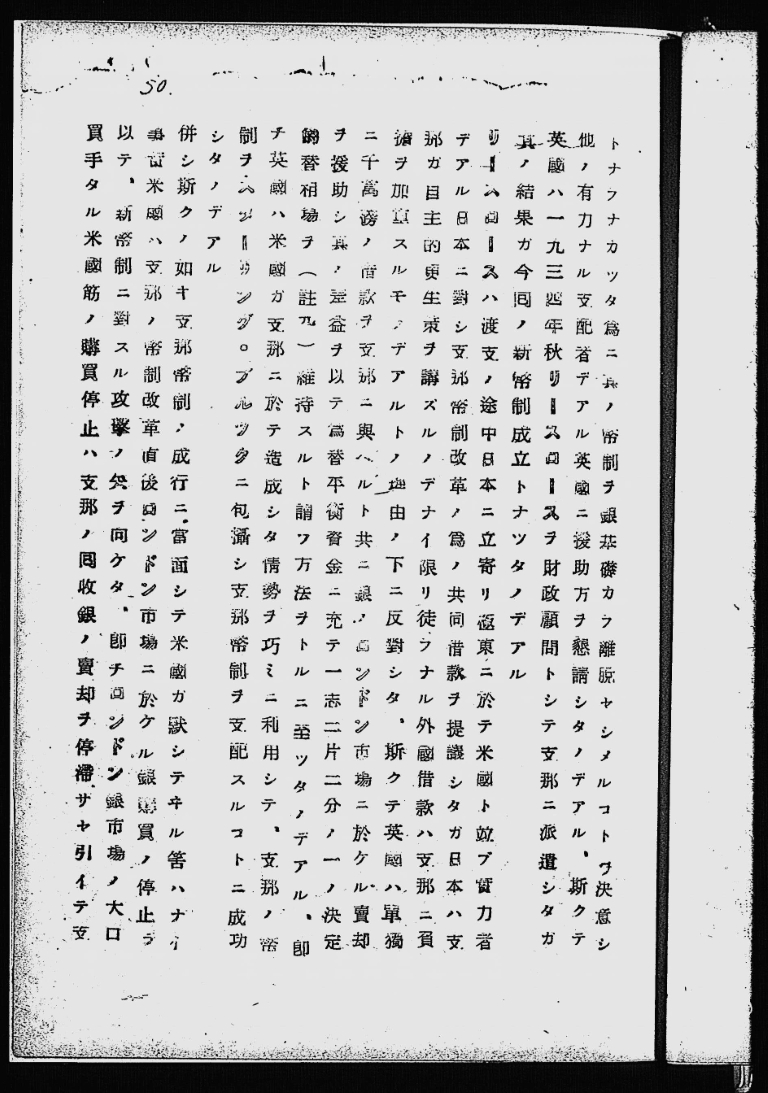 50.
トナラナカツタ爲ニ其ノ幣制ヲ銀基礎カラ離脱セシメルコトヲ決意シ
他ノ有力ナル支配者デアル英國ニ援助方ヲ懇請シタノデアル、斯クテ
英國ハ一九三四年秋リースロースヲ財政顧問トシテ支那ニ派遣シタガ
其ノ結果ガ今囘ノ新幣制成立トナツタノデアル
リースロースハ渡支ノ途中日本ニ立寄リ極東ニ於テ米國ト竝ブ實力者
デアル日本ニ對シ支那幣制改革ノ爲ノ共同借款ヲ提議シタガ日本ハ支
那ガ自主的更生策ヲ講ズルノデナイ限リ徒ラナル外國借款ハ支那ニ負
擔ヲ加重スルモノデアルトノ理由ノ下ニ反對シタ、斯クテ英國ハ單獨
ニ千萬磅ノ借款ヲ支那ニ與ヘルト共ニ銀ノロンドン市場ニ於ケル賣却
ヲ援助シ其ノ差益ヲ以テ爲替平衡資金ニ充テ一志二片二分ノ一ノ決定
的替相場ヲ（註九）維持スルト謂フ方法ヲトルニ至ツタノデアル、卽
チ英國ハ米國ガ支那ニ於テ造成シタ情勢ヲ巧ミニ利用シテ、支那ノ幣
制ヲスターリング。ブロックニ包攝シ支那幣制ヲ支配スルコトニ成功
シタノデアル
併シ斯クノ如キ支那幣制ノ成行ニ當面シテ米國ガ默シテヰル筈ハナイ
事實米國ハ支那ノ幣制改革直後ロンドン市場ニ於ケル銀購買ノ停止ヲ
以テ、新幣制ニ對スル攻擊ノ矢ヲ向ケタ、卽チロンドン銀市場ノ大口
買手タル米國筋ノ購買停止ハ支那ノ囘收銀ノ賣却ヲ停滯サセ引イテ支